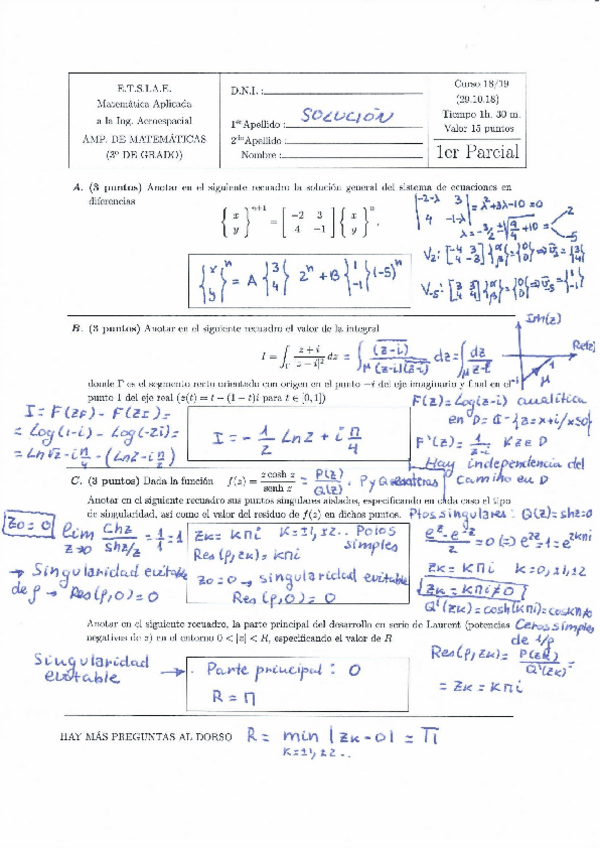 E.T.S.I.A.E.
Matemática Aplicada
a la Ing. Aeroespacial
AMP. DE MATEMÁTICAS
(3º DE GRADO)
D.N.I. :
1er Apellido : SOLUCIÓN
2do Apellido :
Nombre :
Curso 18/19
(29.10.18)
Tiempo 1h. 30 m.
Valor 15 puntos
1er Parcial
A. (3 puntos) Anotar en el siguiente recuadro la solución general del sistema de ecuaciones en
diferencias
{x y}^{n+1} = [-2 3; 4 -1] {x y}^n.
|-2-λ 3; 4 -1-λ| = λ²+3λ-10=0
λ = -3/2 ± √(9/4+10) = 2, -5
V₂: [-4 3; 4 -3] {α β} = {0 0} ⇒ v̄₂ = {3 4}
V₋₅: [3 3; 4 4] {α β} = {0 0} ⇒ v̄₋₅ = {1 -1}
{x y}^n = A {3 4} 2^n + B {1 -1} (-5)^n
B. (3 puntos) Anotar en el siguiente recuadro el valor de la integral
I = ∫_Γ (z+i)/|z-i|² dz = ∫_Γ (z-i)/((z-i)(z-i)) dz = ∫_Γ dz/(z-i)
Im(z)
Re(z)
donde Γ es el segmento recto orientado con origen en el punto −i del eje imaginario y final en el
punto 1 del eje real (z(t) = t − (1−t)i para t ∈ [0,1])
F(z) = Log(z-i) analítica
en D = ℂ - {z=x+i/x≤0}
F'(z) = 1/(z-i) ∀z∈D
Hay independencia del
camino en D
I = F(zF) - F(zI) =
= Log(1-i) - Log(-2i) =
= Ln√2 - iπ/4 - (Ln2 - iπ/2)
I = -1/2 Ln2 + i π/4
C. (3 puntos) Dada la función f(z) = z cosh z / senh z = P(z)/Q(z). P y Q enteras
Anotar en el siguiente recuadro sus puntos singulares aislados, especificando en cada caso el tipo
de singularidad, así como el valor del residuo de f(z) en dichos puntos.
Ptos singulares: Q(z)=shz=0
(e^z - e^-z)/2 = 0 ⇔ e^2z = 1 = e^2kπi
zk = kπi k=0,±1,±2
zk = kπi ≠ 0
Q'(zk) = cosh(kπi) = coskπ≠0
Ceros simples
de 1/f
Res(f,zk) = P(zk)/Q'(zk) =
= zk = kπi
z₀=0 lim z→0 Chz/(shz/z) = 1/1 = 1
→ Singularidad evitable
de f → Res(f,0)=0
zk = kπi k=±1,±2.. Polos
simples
Res(f,zk) = kπi
z₀=0 → singularidad evitable
Res(f,0)=0
Anotar en el siguiente recuadro, la parte principal del desarrollo en serie de Laurent (potencias
negativas de z) en el entorno 0 < |z| < R, especificando el valor de R
Singularidad
evitable →
Parte principal: 0
R = π
HAY MÁS PREGUNTAS AL DORSO
R = min |zk-0| = π
k=±1,±2..